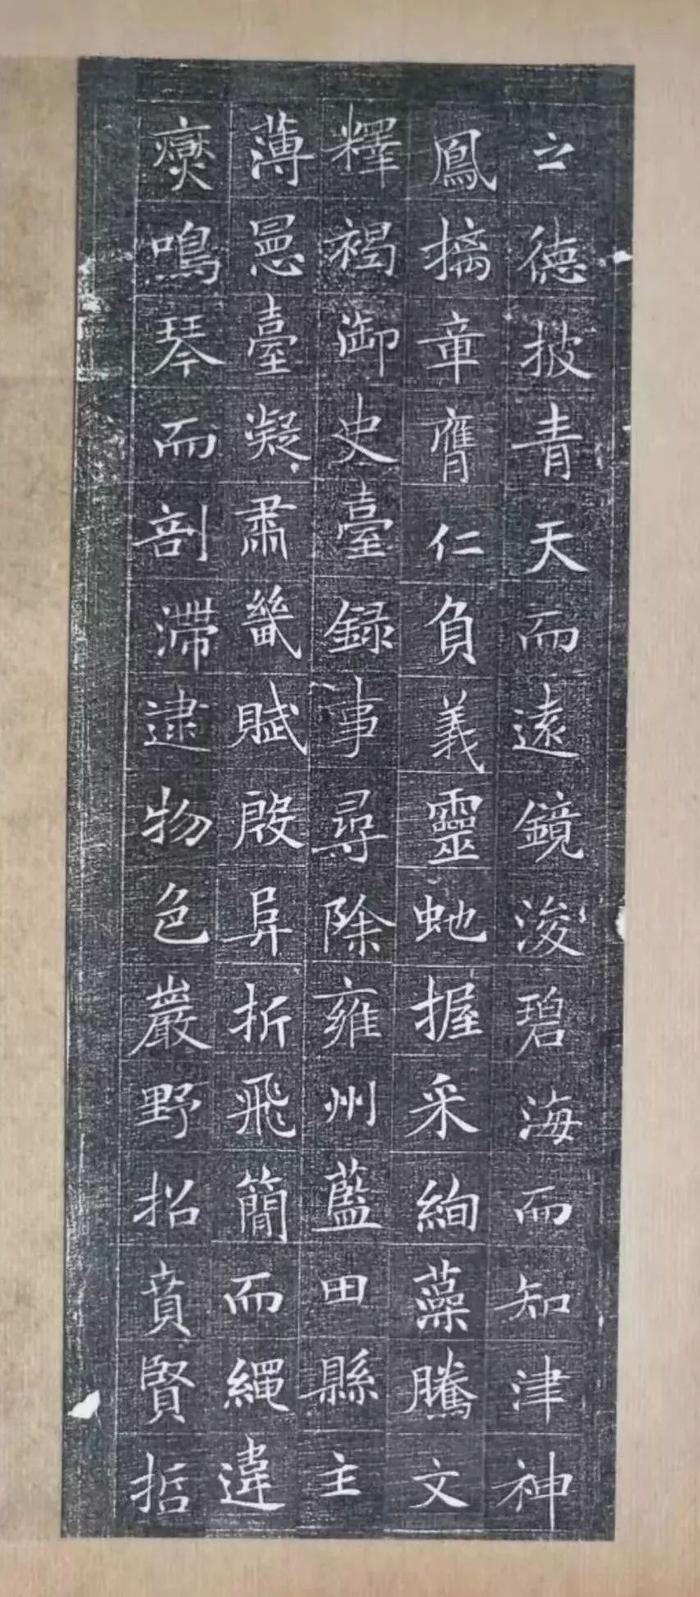 之德披青天而遠鏡浚碧海而知津神
鳳摛章膺仁負義靈虵握采絢藻騰文
釋褐御史臺錄事尋除雍州藍田縣主
薄曷臺凝肅畿賦殷异折飛簡而繩違
爕鳴琴而剖滯逮物色巖野招賁賢哲